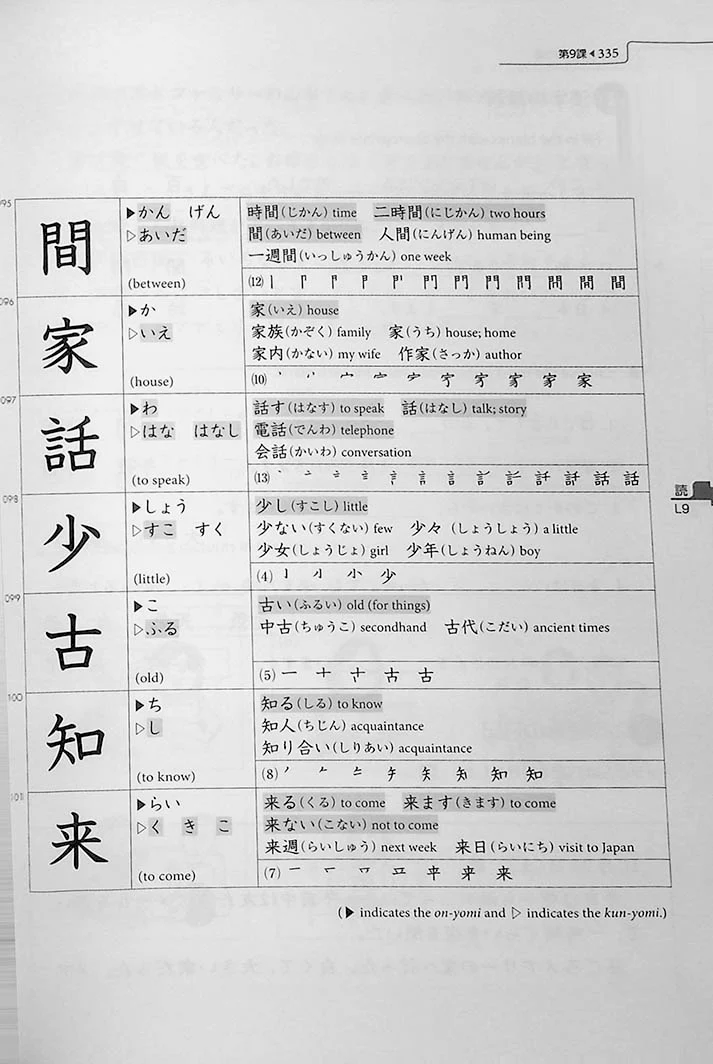 第9課◀335
095
間
▶かん げん
▷あいだ
(between)
時間(じかん) time 二時間(にじかん) two hours
間(あいだ) between 人間(にんげん) human being
一週間(いっしゅうかん) one week
(12)
096
家
▶か
▷いえ
(house)
家(いえ) house
家族(かぞく) family 家(うち) house; home
家内(かない) my wife 作家(さっか) author
(10)
097
話
▶わ
▷はな はなし
(to speak)
話す(はなす) to speak 話(はなし) talk; story
電話(でんわ) telephone
会話(かいわ) conversation
(13)
098
少
▶しょう
▷すこ すく
(little)
少し(すこし) little
少ない(すくない) few 少々 (しょうしょう) a little
少女(しょうじょ) girl 少年(しょうねん) boy
(4)
099
古
▶こ
▷ふる
(old)
古い(ふるい) old (for things)
中古(ちゅうこ) secondhand 古代(こだい) ancient times
(5)
100
知
▶ち
▷し
(to know)
知る(しる) to know
知人(ちじん) acquaintance
知り合い(しりあい) acquaintance
(8)
101
来
▶らい
▷く き こ
(to come)
来る(くる) to come 来ます(きます) to come
来ない(こない) not to come
来週(らいしゅう) next week 来日(らいにち) visit to Japan
(7)
(▶ indicates the on-yomi and ▷ indicates the kun-yomi.)
読
L9